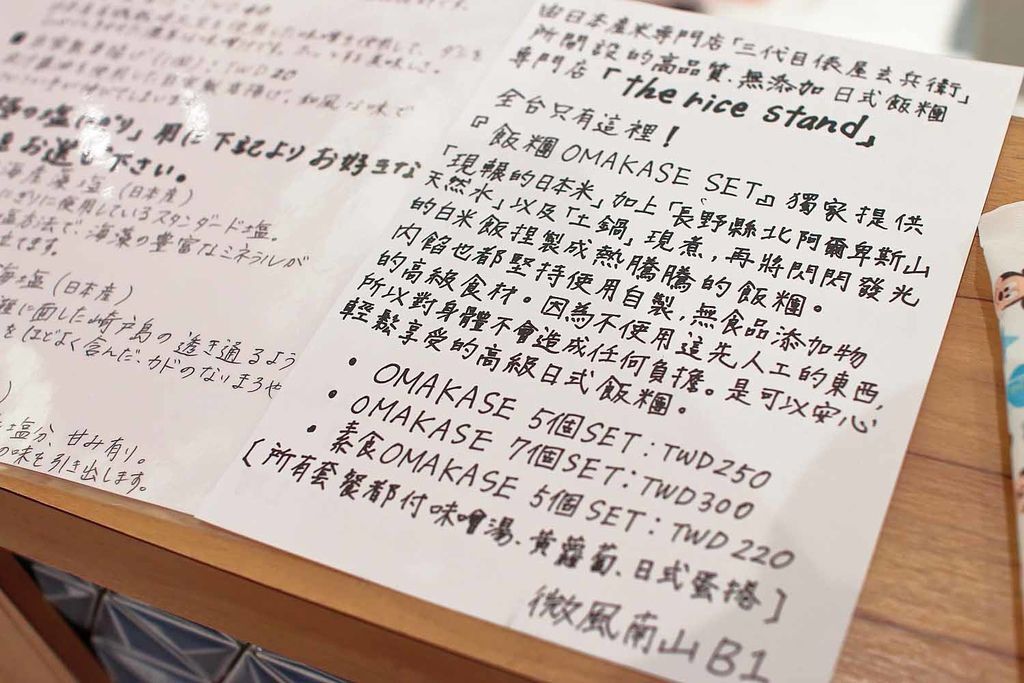 由日本產米專門店「三代目俵屋玄兵衛」
所開設的高品質.無添加 日式飯糰
專門店「the rice stand」
全台只有這裡!
『飯糰OMAKASE SET』獨家提供
「現輾的日本米」加上「長野縣北阿爾卑斯山
天然水」以及「土鍋」現煮,再將閃閃發光
的白米飯捏製成熱騰騰的飯糰。
內餡也都堅持使用自製,無食品添加物
的高級食材。因為不使用這先人工的東西,
所以對身體不會造成任何負擔。是可以安心
輕鬆享受的高級日式飯糰。
・OMAKASE 5個SET:TWD250
・OMAKASE 7個SET:TWD300
・素食OMAKASE 5個SET:TWD220
[所有套餐都付味噌湯.黃蘿蔔.日式蛋捲]
微風南山B1
TWD20
和風な味で
の塩にぎり」用に下記よりお好きな
お選び下さい。
海産藻塩(日本産)
にぎりに使用しているスタンダード塩。
方法で、海藻の豊富なミネラルが
てます。
海塩(日本産)
に面した崎戸島の透き通るよう
をほどよく含んだ、カドのないまろや
塩分、甘み有り。
の味を引き出します。